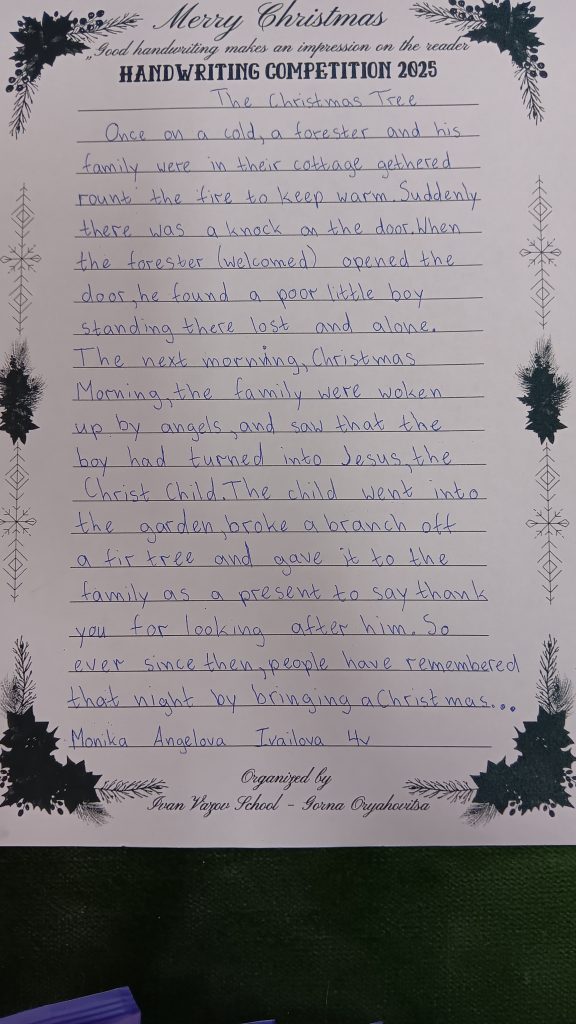 Merry Christmas
„Good handwriting makes an impression on the reader"
HANDWRITING COMPETITION 2025
The Christmas Tree
Once on a cold, a forester and his
family were in their cottage gethered
rount the fire to keep warm. Suddenly
there was a knock on the door. When
the forester (welcomed) opened the
door, he found a poor little boy
standing there lost and alone.
The next morning, Christmas
Morning, the family were woken
up by angels, and saw that the
boy had turned into Jesus, the
Christ Child. The child went into
the garden, broke a branch off
a fir tree and gave it to the
family as a present to say thank
you for looking after him. So
ever since then, people have remembered
that night by bringing a Christmas...
Monika Angelova Ivailova 4v
Organized by
Ivan Vazov School - Gorna Oryahovitsa